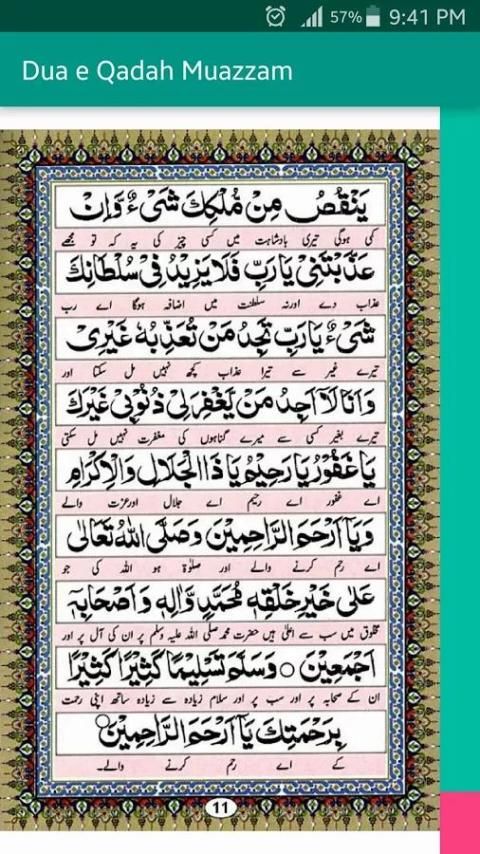 57% 9:41 PM
Dua e Qadah Muazzam
يَنْقُصُ مِنْ مُلْكِكَ شَيْءٌ وَّاِنْ
کمی ہوگی تیری بادشاہت میں کسی چیز کی یہ کہ تو مجھے
عَذَّبْتَنِيْ يَارَبِّ فَلَا يَزِيْدُ فِيْ سُلْطَانِكَ
عذاب دے اورنہ سلطنت میں اضافہ ہوگا اے رب
شَيْءٌ يَارَبِّ تَجِدُ مَنْ تُعَذِّبُهٗ غَيْرِيْ
تیرے غیر سے تیرا عذاب کچھ نہیں مل سکتا اور
وَاَنَا لَآ اَجِدُ مَنْ يَّغْفِرُ لِيْ ذُنُوْبِيْ غَيْرَكَ
تیرے بغیر کسی سے میرے گناہوں کی مغفرت نہیں مل سکتی
يَا غَفُوْرُ يَارَحِيْمُ يَا ذَاالْجَلَالِ وَالْاِكْرَامِ
اے غفور اے رحیم اے جلال اورعزت والے
وَيَآ اَرْحَمَ الرَّاحِمِيْنَ وَصَلَّى اللّٰهُ تَعَالٰى
اے رحم کرنے والے اور صلوٰۃ ہو اللہ کی جو
عَلٰى خَيْرِ خَلْقِهٖ مُحَمَّدٍ وَّاٰلِهٖ وَاَصْحَابِهٖ
مخلوق میں سب سے اعلیٰ ہیں حضرت محمد صلی اللہ علیہ وسلم پر ان کی آل پر اور
اَجْمَعِيْنَ ○ وَسَلَّمَ تَسْلِيْمًا كَثِيْرًا كَثِيْرًا
ان کے صحابہ پر اور سب پر اور سلام زیادہ سے زیادہ ساتھ اپنی رحمت
بِرَحْمَتِكَ يَآ اَرْحَمَ الرَّاحِمِيْنَ ○
کے اے رحم کرنے والے۔
11